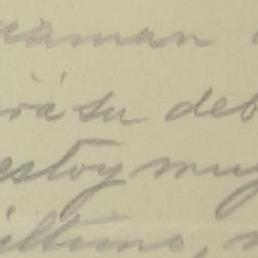 raman
rá su deb
estoy muy
último,